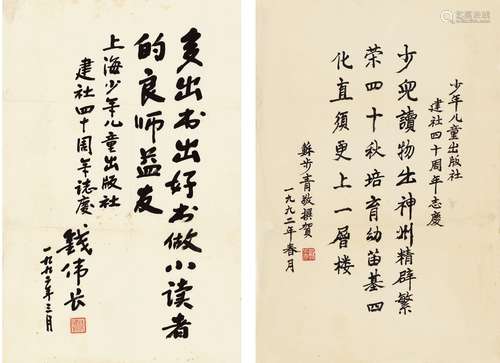 多出书出好书做小读者
的良师益友
上海少年儿童出版社
建社四十周年志庆
钱伟长
一九九二年三月
少年儿童出版社
建社四十周年志庆
少兒讀物出神州精辟繁
荣四十秋培育幼苗基四
化直須更上一層楼
蘇步青敬撰賀
一九九二年春月